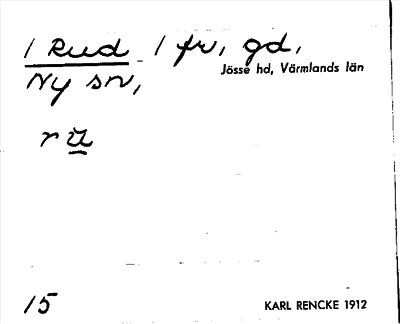 1 Rud 1 fr, gd,
Jösse hd, Värmlands län
Ny sn,
15
KARL RENCKE 1912